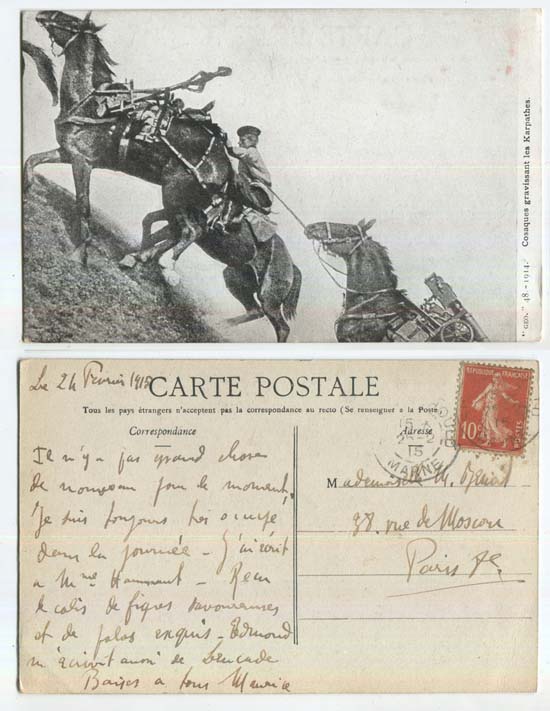 Cosaques gravissant les Karpathes.
"GEO." 48.-1914.
Le 24 Février 1915
CARTE POSTALE
Tous les pays étrangers n'acceptent pas la correspondance au recto (Se renseigner à la Poste
Correspondance
Adresse
RÉPUBLIQUE FRANÇAISE
10
15
MARNE
Il n'y a pas grand chose
de nouveau pour le moment,
Je suis toujours très occupé
dans la journée - J'ai écrit
a Mme - Reçu
le colis de figues savoureuses
et de exquis - Edmond
m'écrit aussi de
Baises a tous Maurice
Mademoiselle M.
38. rue de Moscou
Paris